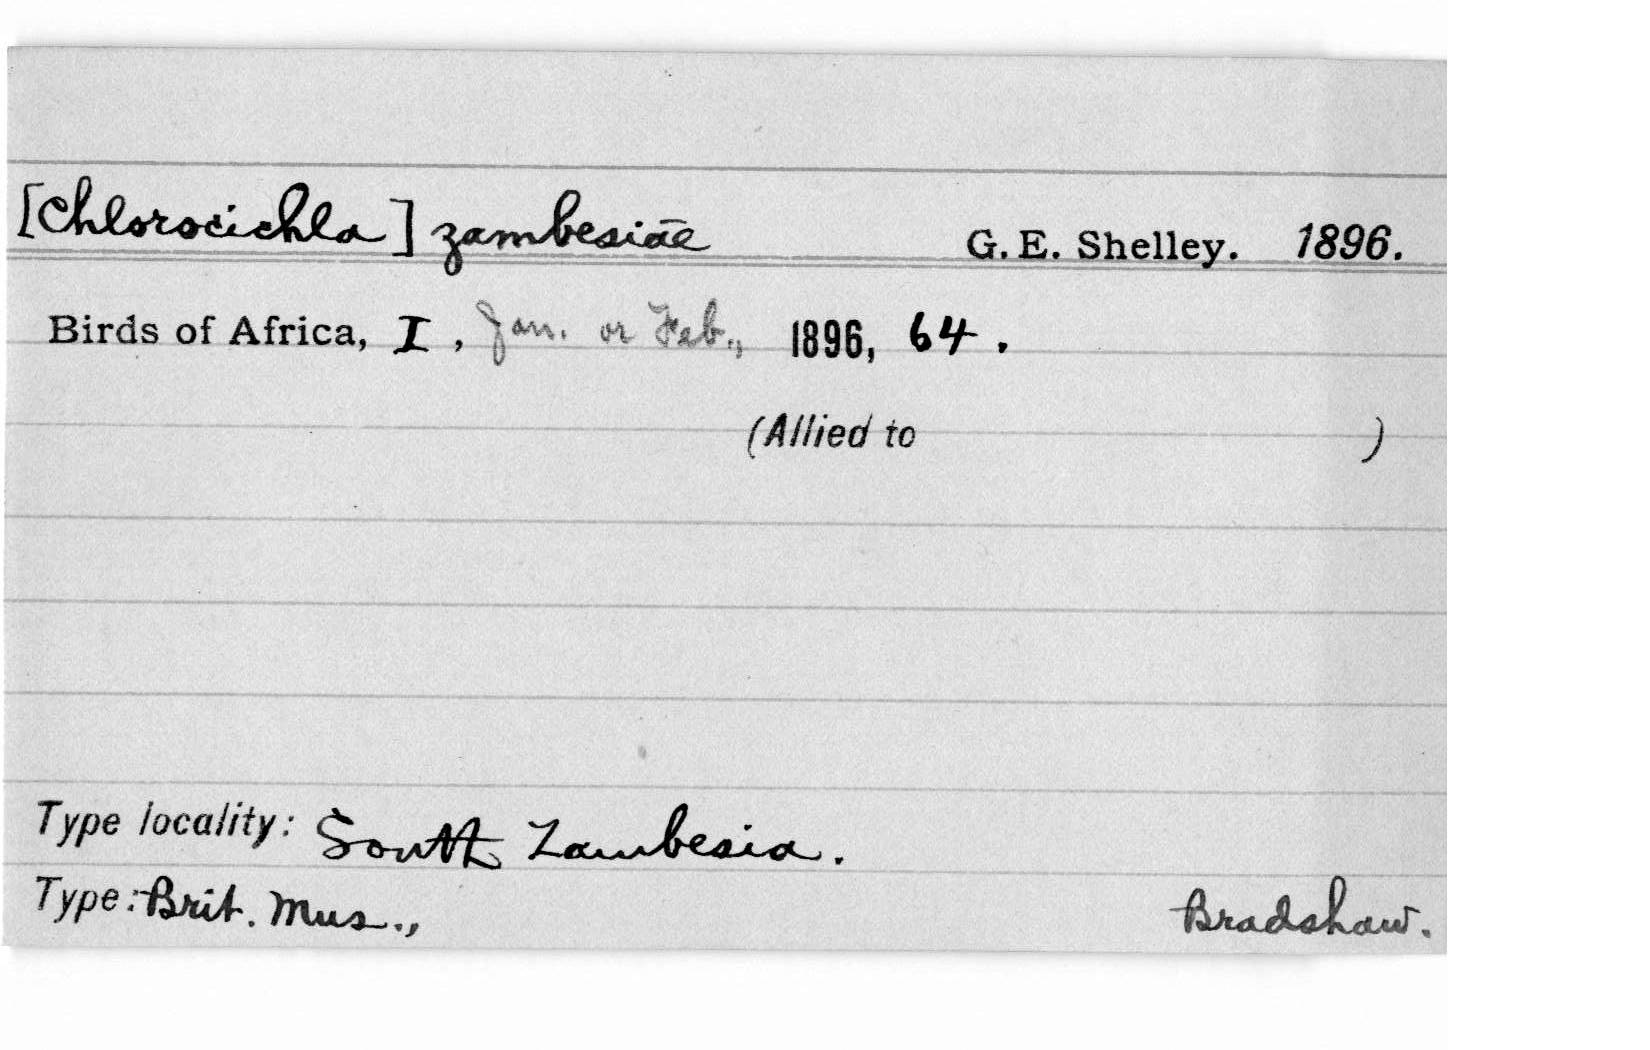 [Chlorocichla] zambesiae G. E. Shelley. 1896.
Birds of Africa, I, Jan. or Feb., 1896, 64.
(Allied to )
Type locality: South Zambesia.
Type: Brit. Mus., Bradshaw.